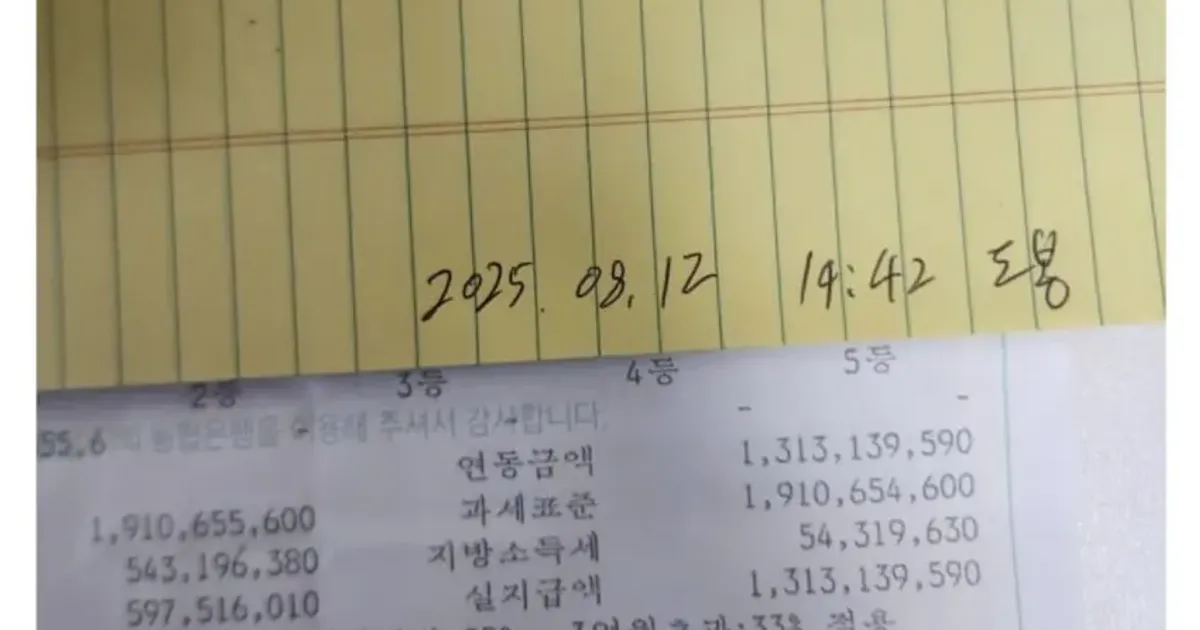 2025. 08. 12 14:42 도봉
2등 3등 4등 5등
- - -
55.6 농협은행을 이용해 주셔서 감사합니다.
연동금액 1,313,139,590
1,910,655,600 과세표준 1,910,654,600
543,196,380 지방소득세 54,319,630
597,516,010 실지급액 1,313,139,590
3억원초과:33% 적용